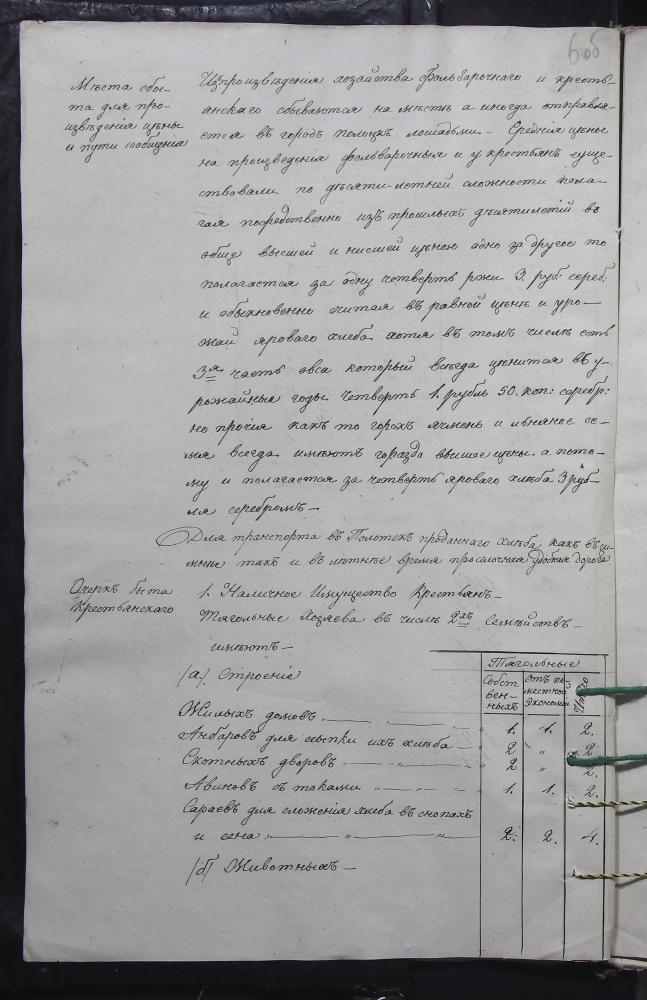 6 об
Мѣста сбы-
та для про-
извѣдения цѣны
и пути сообщенія
Изпроизвѣдения хозяйства Фольварочнаго и кресть-
анскаго сбываются на мѣстѣ а иногда отправля-
ется въ городъ полоцкъ лошадьми – Среднія цѣны
на произведения фольварочныя и у крестьянъ суще-
ствовали по дѣсяти-летней сложности пола-
гая посредственно изъ прошлыхъ дѣсятилетій въ
обще высшей и нисшей цѣною одно за другое то
полагается за одну четверть ржи 3. руб. сереб:
и обыкновенно считая въ равной цѣнѣ и уро-
жай яроваго хлеба хотя въ томъ числѣ есть
3я часть овса который всѣгда цѣнится въ у-
рожайные годы четверть 1. рубль 50. коп: серебр:
но прочія какъ то горохъ ячмень и льняное се-
мя всегда имѣютъ гораздо высшое цѣны а пото-
му и полагается за четверть яроваго хлѣба 3 руб-
ля серебромъ –
Для транспорта въ Полотскъ проданнаго хлѣба какъ въ зи-
мнѣе такъ и въ лѣтнѣе время просіолочная удобная дорога
Очеркъ быта
Крестьянскаго
1. Наличное Имущество Крестьянъ –
Тягольные Хозяева въ числѣ 2хъ Семѣйствъ –
имѣютъ –
Тягольные
/а/ Строеніе
Собст
вен-
ныхъ
отъ по-
местной
Экономіи
Итого
Жилыхъ домовъ 1. 1. 2.
Анбаровъ для ссыпки ихъ хлѣба – 2 „ 2
Скотныхъ дворовъ – „ – 2 „ 2.
Авиновъ съ токами „ – „ – „ 1. 1. 2.
Сараевъ для сложенія хлѣба въ снопахъ
и сена „ – „ – „ 2. 2. 4.
/б/ Животныхъ –